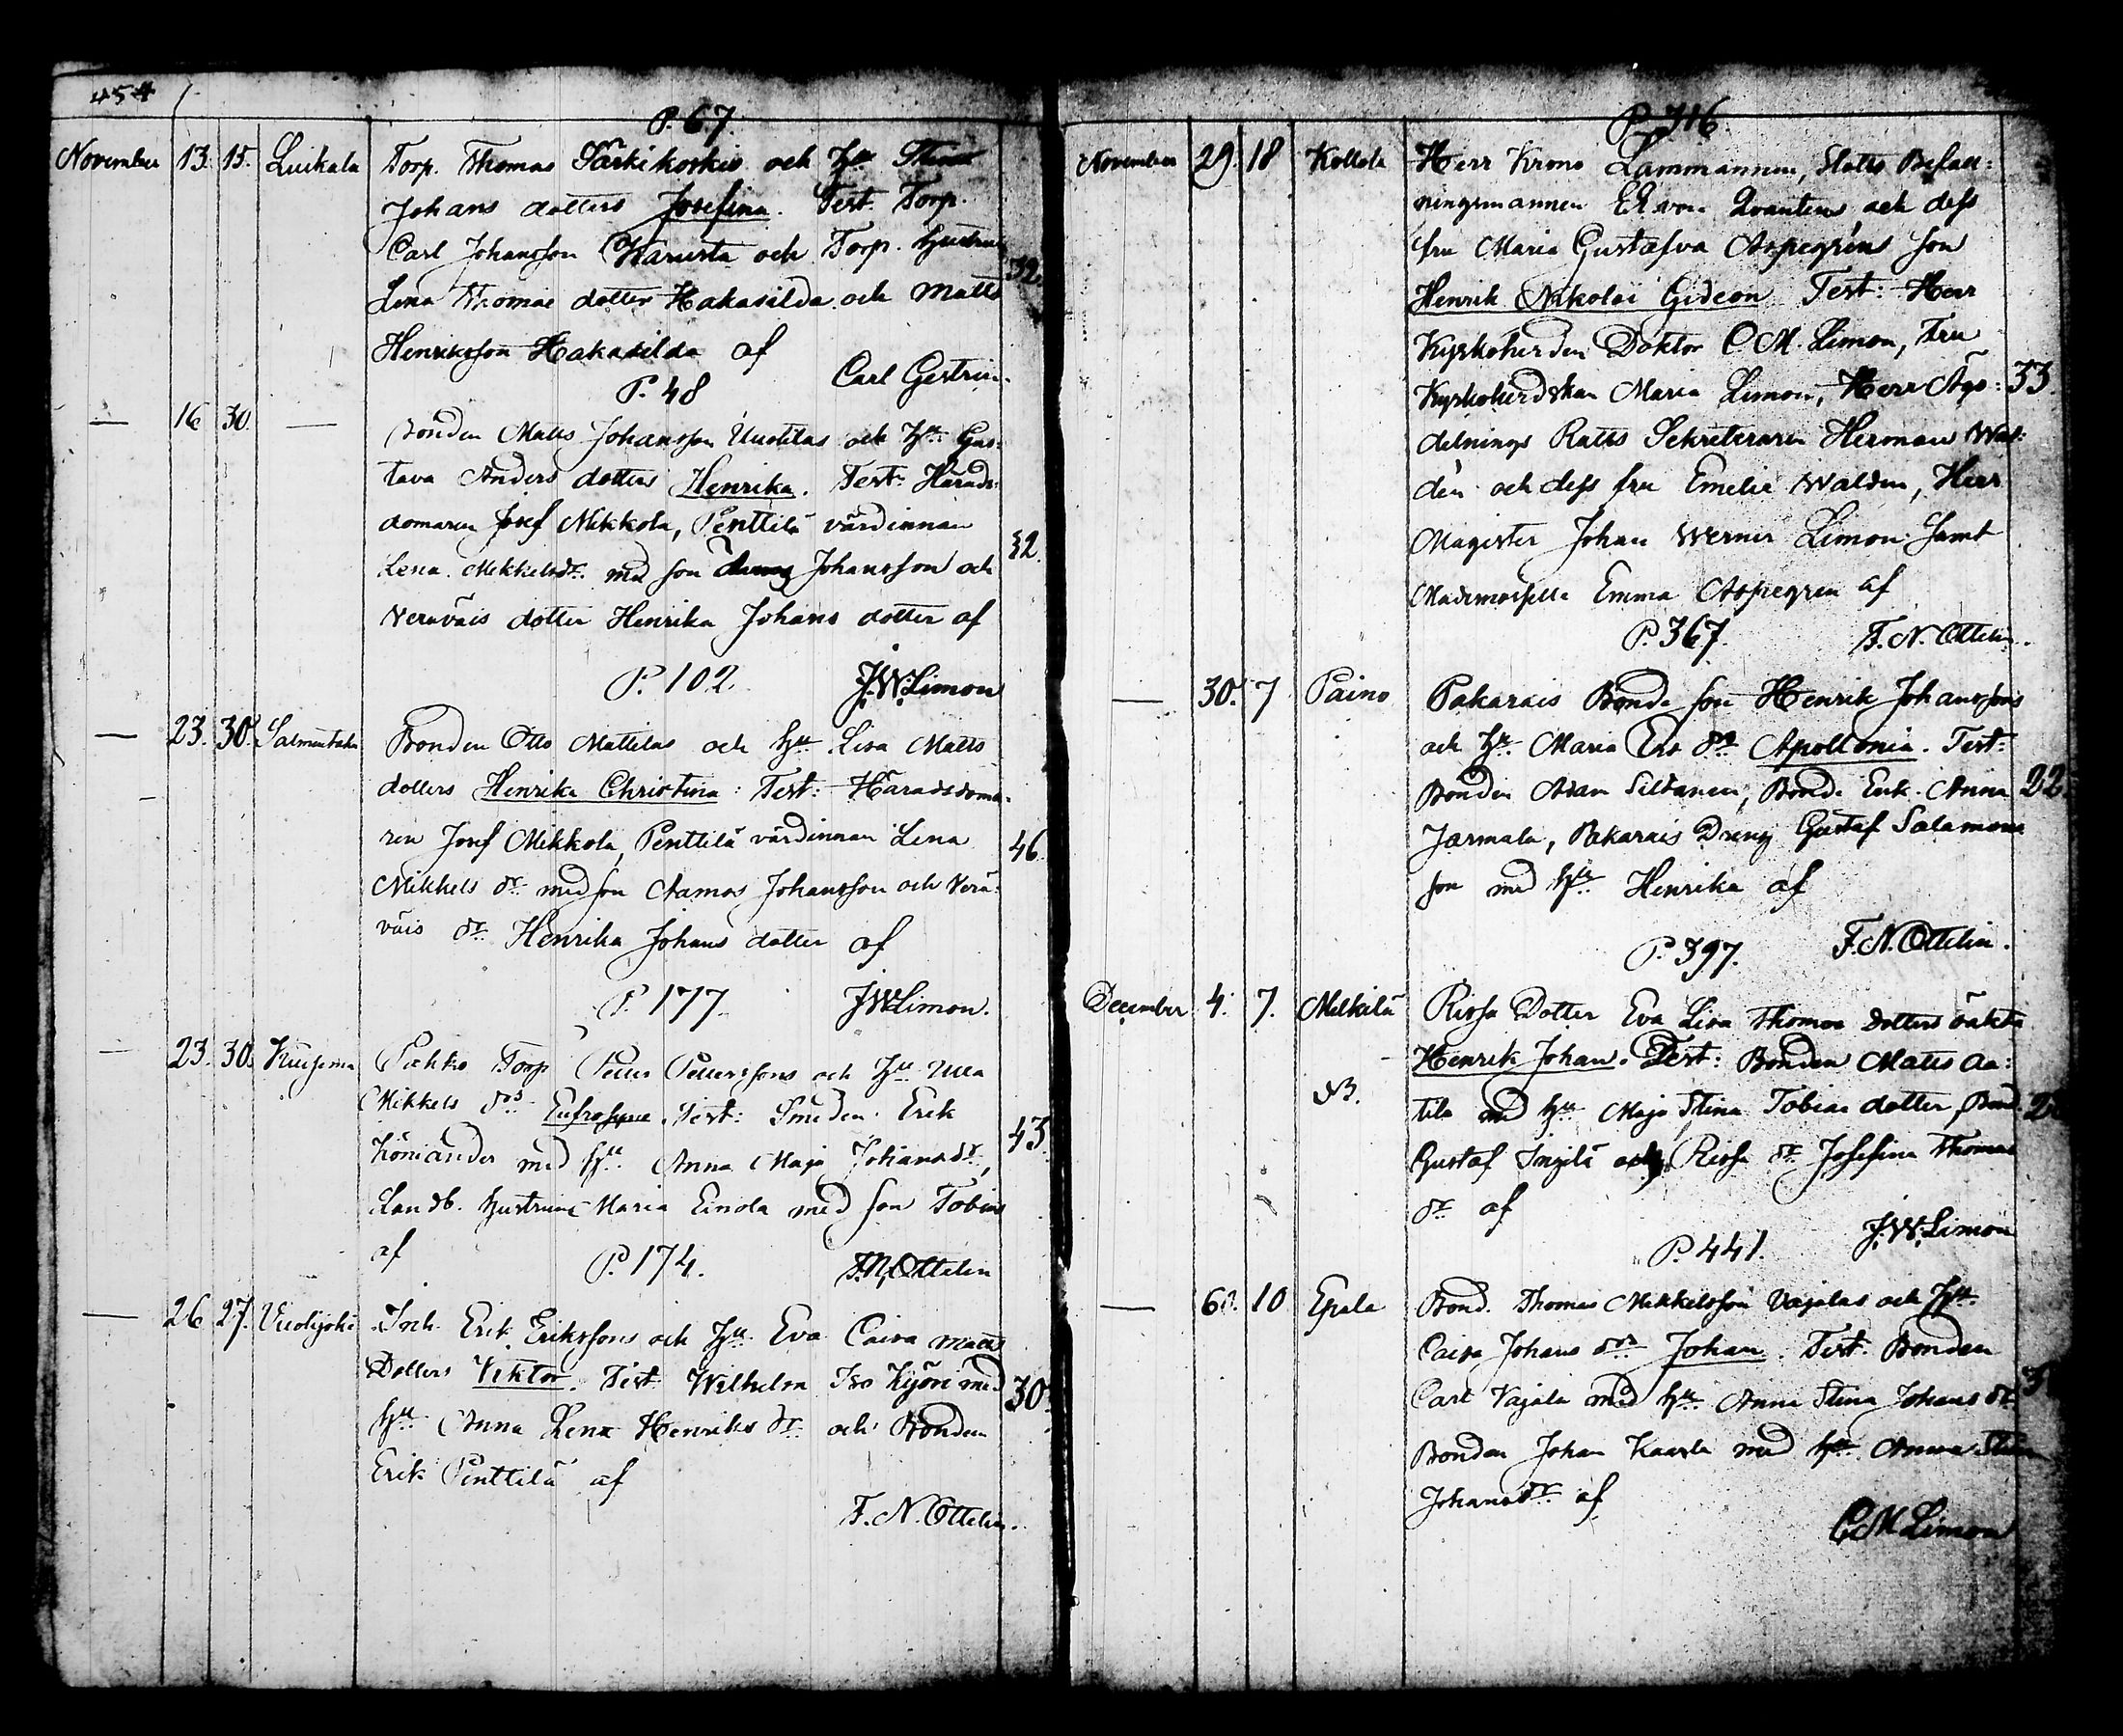 454
P. 67.
November 13. 15. Luikala Torp. Thomas Särkikoskis och Hu Stina
Johans dotters Josefina. Test. Torp.
Carl Johansson Karusta och Torp. hustru
32
Lena Thomae dotter Hakasilda och Matts
Henriksson Hakasilda af
Carl Gestrin.
P. 48
— 16 30. — Bonden Matts Johansson Uuotilas och Hu Gus-
tava Anders dotters Henrika. Test: Härads-
domaren Josef Mikkola, Penttilä värdinnan
32.
Lena Mikkelsdr. med son Johansson och
Veräväis dotter Henrika Johans dotter af
P. 102. J.W.Limon
— 23. 30. Salmentaka Bonden Otto Mattilas och Hu Lisa Matts
dotters Henrika Christina: Test: Häradsdoma-
ren Josef Mikkola, Penttilä värdinnan Lena
46.
Mikkels dr. med son Aamos Johansson och Verä-
väis dr. Henrika Johans dotter af
P. 177. J.W.Limon.
— 23. 30. Kuisema Torp Petter Petterssons och Hu Ulla
Mikkels drs Eufrosyne. Test: Smeden Erik
43.
Köniander med Hu Anna Maja Johansdr,
Landb. hustrun Maria Einola med son Tobias
af P. 174. F.N.Ottelin
— 26 27. Vuolijoki Inh. Erik Erikssons och Hu Eva Caisa Matts
Dotters Viktor. Test. Wilhelm Iso Kyöri med
30.
Hu Anna Lena Henriks dr. och Bonden
Erik Penttilä af
F. N. Ottelin.
P. 316
November 29. 18 Kollola Herr Krono Länmannen, Slotts Befall-
ningsmannen von Qvantens och dess
fru Maria Gustafva Aspegréns son
Henrik Nikolai Gideon Test: Herr
Kyrkoherden Doktor C.M. Limon, Fru
Kyrkoherdskan Maria Limon, Herr Ägo-
33.
delnings Rätts Sekreteraren Herman Wal-
dén och dess fru Emelie Waldén, Herr
Magister Johan Werner Limon samt
Mademoiselle Emma Aspegren af
P. 367. F. N. Ottelin.
— 30. 7 Paino Pakarais Bonde son Henrik Johanssons
och Hu. Maria Ers drs Apollonia. Test:
Bonden Adam Siltanen, Bond. Enk. Anna 22.
Jarmala, Pakarais Dreng Gustaf Salamons
son med Hu Henrika af
P. 397. F. N. Ottelin.
December 4. 7. Melkilä Rissa Dotter Eva Lisa Thomas Dotters oäkta
Henrik Johan. Test: Bonden Matts Aa-
tila med Hu Maja Stina Tobias dotter, Bond.
Gustaf Ingilä och Rissa dr. Josefina Thomas
dr. af
P. 441. J.W.Limon
— 6. 10 Epala Bond. Thomas Mikkelsson Vajalas och Hu.
Caisa Johans drs Johan. Test. Bonden
Carl Vajala med Hu. Anna Stina Johans dr.
Bonden Johan Kaarla med Hu. Anna Stina
Johansdr. af
C M Limon